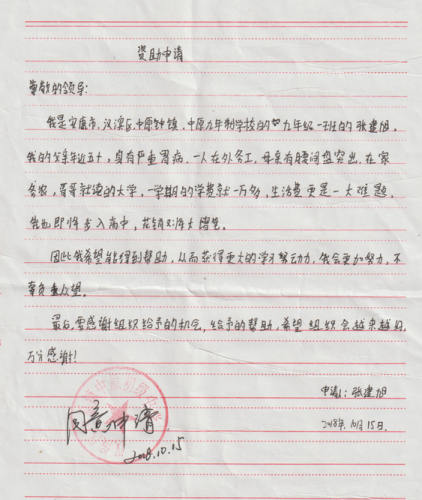 资助申请
尊敬的领导:
我是安康市,汉滨区,中原钟镇,中原九年制学校的九年级一班的张建旭,
我的父亲年近五十,身有严重胃病,一人在外务工,母亲有腰间盘突出,在家
务农,哥哥就读的大学,一学期的学费就一万多,生活费更是一大难题,
我也即将步入高中,花销又将大增笔。
因此我希望能得到帮助,从而获得更大的学习努动力,我会更加努力,不
辜负重众望。
最后,要感谢组织给予的机会,给予的帮助,希望组织会越来越好,
万分感谢!
申请人:张建旭
2018年10月15日.
同意申请
2018.10.15